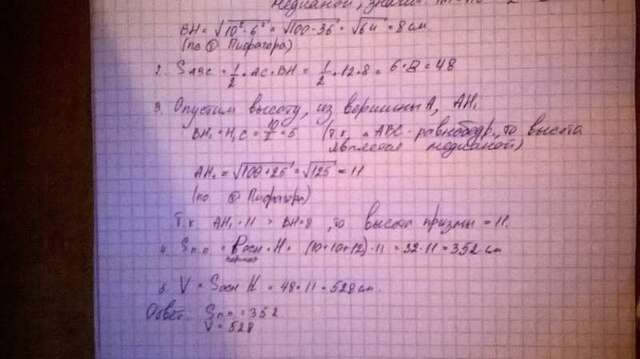 медианой, значит
BH = √10² - 6² = √100 - 36 = √64 = 8 см
(по Ⓣ Пифагора)
2. S ABC = 1/2 · AC · BH = 1/2 · 12 · 8 = 6 · 8 = 48
3. Опустим высоту, из вершины A, AH₁
BH₁ = H₁C = 10/2 = 5 (т.к. ABC - равнобедр., то высота
является медианой)
AH₁ = √100 + 25 = √125 = 11
(по Ⓣ Пифагора)
Т.к. AH₁ = 11 > BH = 8, то высота призмы = 11.
4. Sп.п. = Pосн · H = (10+10+12) · 11 = 32 · 11 = 352 см
5. V = Sосн H = 48 · 11 = 528 см.
Ответ: Sп.п. = 352
V = 528